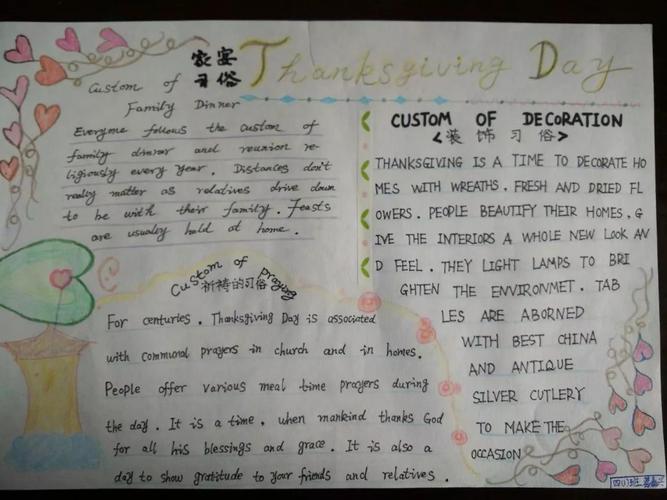 Thanksgiving Day
家宴
习俗
Custom of
Family Dinner
Everyone follows the custom of
family dinner and reunion re-
ligiously every year. Distances don't
really matter as relatives drive down
to be with their family. Feasts
are usually held at home.
CUSTOM OF DECORATION
<装饰习俗>
THANKSGIVING IS A TIME TO DECORATE HO
MES WITH WREATHS, FRESH AND DRIED FL
OWERS. PEOPLE BEAUTIFY THEIR HOMES, G
IVE THE INTERIORS A WHOLE NEW LOOK AN
D FEEL. THEY LIGHT LAMPS TO BRI
GHTEN THE ENVIRONMET. TAB
LES ARE ABORNED
WITH BEST CHINA
AND ANTIQUE
SILVER CUTLERY
TO MAKE THE
OCCASION
Custom of praying
祈祷的习俗
For centuries, Thanksgiving Day is associated
with communal prayers in church and in homes.
People offer various meal time prayers during
the day. It is a time, when mankind thanks God
for all his blessings and grace. It is also a
day to show gratitude to your friends and relatives.